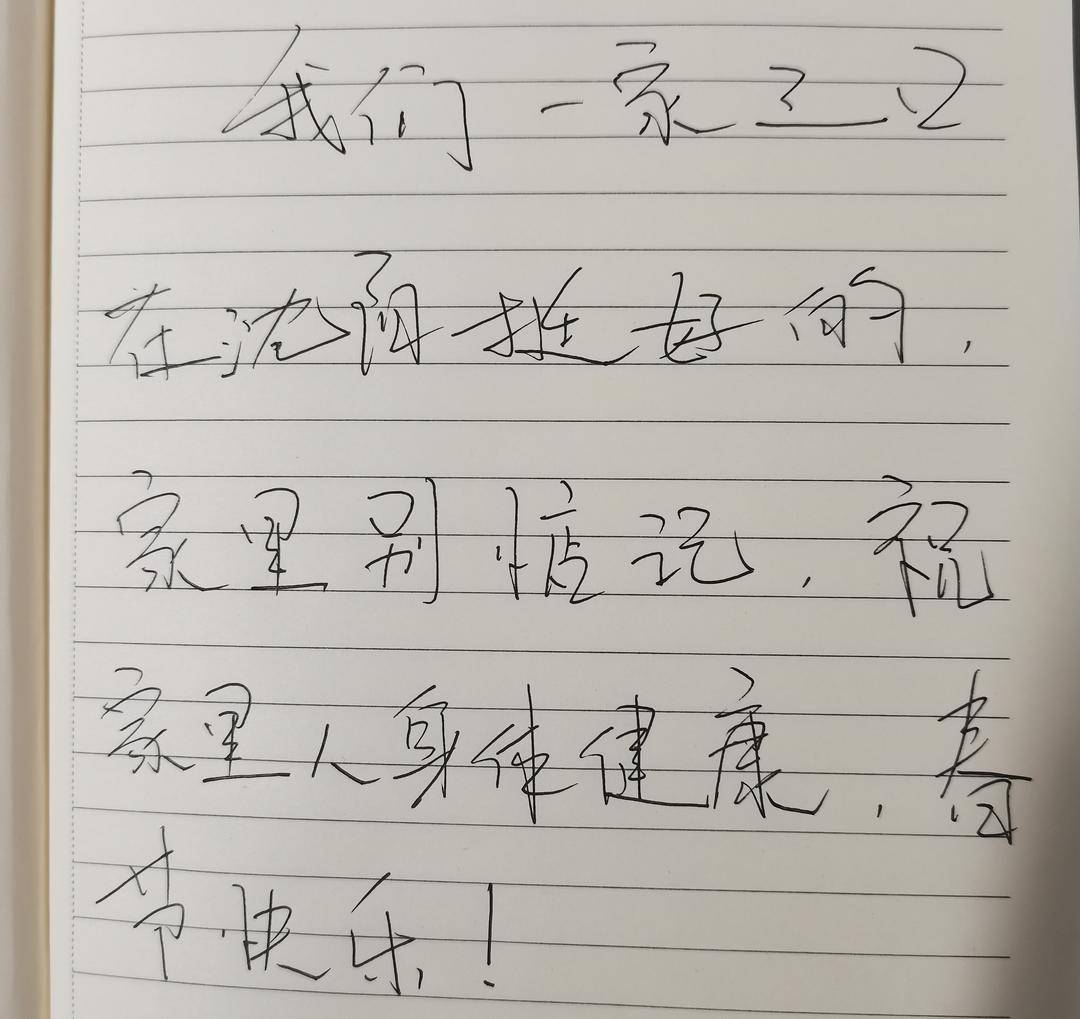 我们一家三口
在沈阳挺好的,
家里别惦记,祝
家里人身体健康,春
节快乐!